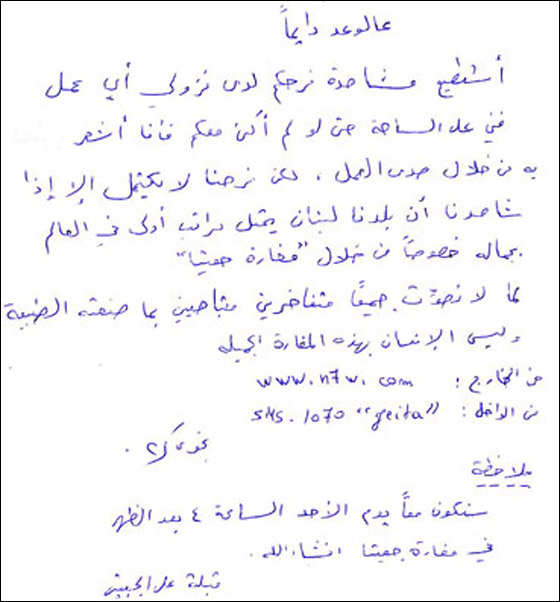 عالوعد دايماً
أستطيع مشاهدة فرحكم لدى نزولي أي عمل
فني على الساحة حتى لو لم أكن معكم فأنا أشعر
به من خلال صدى العمل، لكن فرحنا لا يكتمل إلا إذا
شاهدنا أن بلدنا لبنان يحتل مراتب أولى في العالم
بجماله خصوصاً من خلال "مغارة جعيتا"
لما لا نصوِّت جميعًا متفاخرين متباهين بما صنعته الطبيعة
وليس الإنسان بهذه المغارة الجميله
من الخارج: www.n7w.com
من الداخل: sms.1070 "geita"
نجوى كرم.
ملاحظة
سنكون معاً يوم الأحد الساعة ٤ بعد الظهر
في مغارة جعيتا انشاءالله.
قبلة على الجبين